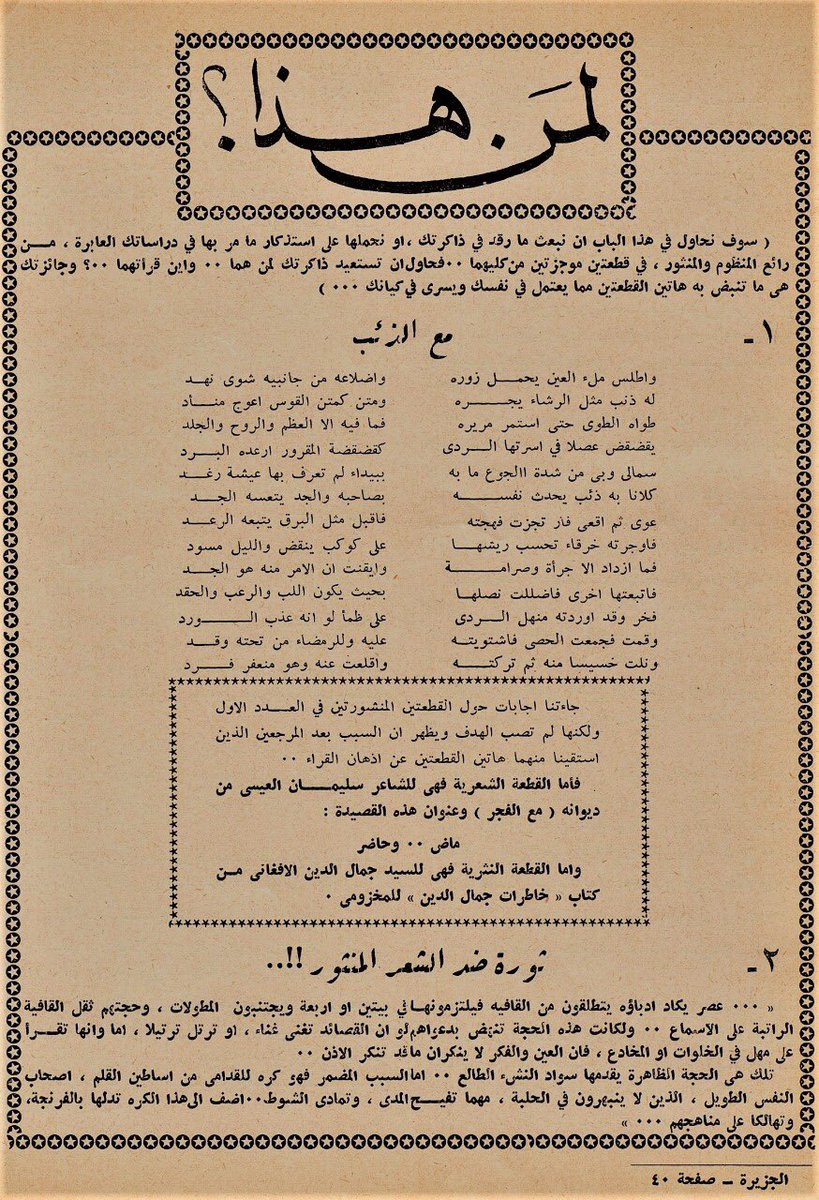 لمَن هذا؟
( سوف نحاول في هذا الباب ان نبعث ما رقد في ذاكرتك ، او نحملها على استذكار ما مر بها في دراساتك العابرة ، مــن
رائع المنظوم والمنثور ، في قطعتين موجزتين من كليهما ٠٠ فحاول ان تستعيد ذاكرتك لمن هما ٠٠ واين قرأتهما ٠٠؟ وجائزتك
هى ما تنبض به هاتين القطعتين مما يعتمل في نفسك ويسرى في كيانك ٠٠٠ )
١ - مع الذئب
واطلس ملء العين يحمــل زوره واضلاعه من جانبيه شوى نهـد
له ذنب مثل الرشاء يجـــره ومتن كمتن القوس اعوج منــأد
طواه الطوى حتى استمر مريره فما فيه الا العظم والروح والجلد
يقضقض عصلا في اسرتها الــردى كقضقضة المقرور ارعده البــرد
سمالى وبى من شدة االجوع ما به ببيداء لم تعرف بها عيشة رغــد
كلانا به ذئب يحدث نفســه بصاحبه والجد يتعسه الجــد
عوى ثم اقعى فار تجزت فهجته فاقبل مثل البرق يتبعه الرعــد
فاوجرته خرقاء تحسب ريشهــا على كوكب ينقض والليل مسود
فما ازداد الا جرأة وصرامــة وايقنت ان الامر منه هو الجــد
فاتبعتها اخرى فاضللت نصلهـا بحيث يكون اللب والرعب والحقد
فخر وقد اوردته منهل الــردى على ظمأ لو انه عذب الــورد
وقمت فجمعت الحصى فاشتويتــه عليه وللرمضاء من تحته وقــد
ونلت خسيسا منه ثم تركتــه واقلعت عنه وهو منعفر فــرد
جاءتنا اجابات حول القطعتين المنشورتين في العــدد الاول
ولكنها لم تصب الهدف ويظهر ان السبب بعد المرجعين الذين
استقينا منهما هاتين القطعتين عن اذهان القراء ٠٠
فأما القطعة الشعرية فهى للشاعر سليمــان العيسى من
ديوانه ( مع الفجر ) وعنوان هذه القصيدة :
ماض ٠٠ وحاضر
واما القطعة النثرية فهى للسيد جمال الدين الافغانى مــن
كتاب « خاطرات جمال الدين » للمخزومى ٠
٢ - ثورة ضد الشعر المنثور !!..
« ٠٠٠ عصر يكاد ادباؤه يتطلقون من القافيه فيلتزمونها في بيتين او اربعة ويجتنبون المطولات ، وحجتهم ثقل القافية
الراتبة على الاسماع ٠٠ ولكانت هذه الحجة تنهض بدعواهم لو ان القصائد تغنى غناء ، او ترتل ترتيلا ، اما وانها تقــرأ
على مهل في الخلوات او المخادع ، فان العين والفكر لا ينكران ما قد تنكر الاذن ٠٠
تلك هى الحجة الظاهرة يقدمها سواد النشء الطالع ٠٠ اما السبب المضمر فهو كره للقدامى من اساطين القلم ، اصحاب
النفس الطويل ، الذين لا ينبهرون في الحلبة ، مهما تفيــح المدى ، وتمادى الشوط ٠٠ اضف الى هذا الكره تدلها بالفرنجة،
وتهالكا على مناهجهم ٠٠٠ »
الجزيرة - صفحة ٤٠